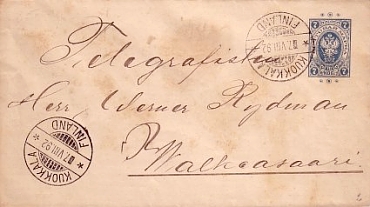 KUOKKALA
7.VIII.92
FINLAND
7 7
Telegrafisten
Herr Werner Rydman
Walkeasaari.
KUOKKALA
7.VIII.92
FINLAND